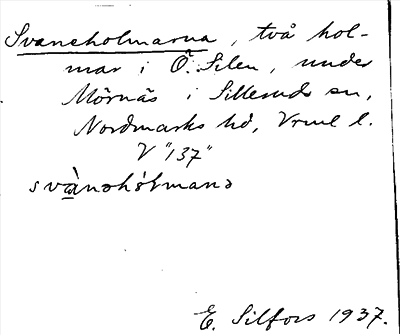 Svaneholmarna, två hol-
mar i Ö. Silen, under
Mörnäs i Sillerud sn,
Nordmarks hd, Vrml l.
V "137"
svὰnəhòlmanə
E. Silfors 1937.